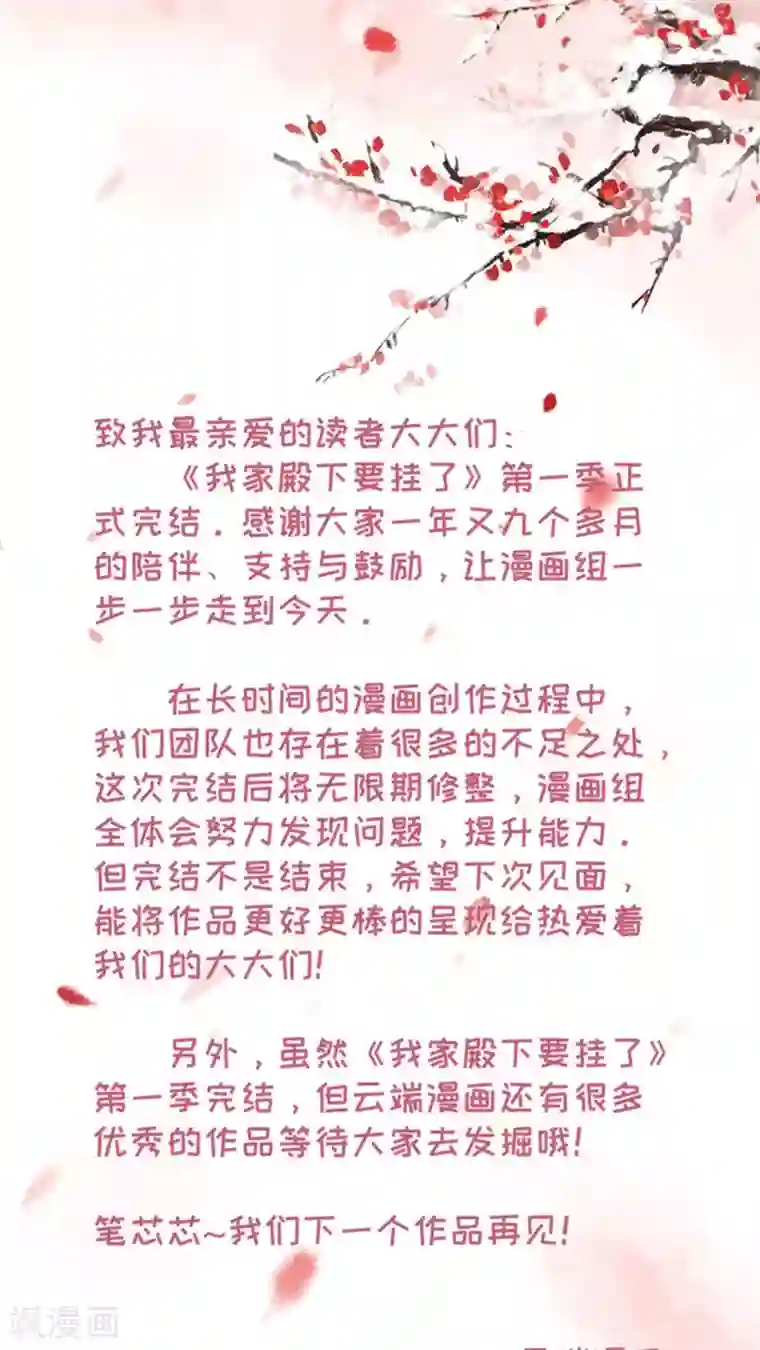 致我最亲爱的读者大大们：
《我家殿下要挂了》第一季正
式完结．感谢大家一年又九个多月
的陪伴、支持与鼓励，让漫画组一
步一步走到今天．
在长时间的漫画创作过程中，
我们团队也存在着很多的不足之处，
这次完结后将无限期修整，漫画组
全体会努力发现问题，提升能力．
但完结不是结束，希望下次见面，
能将作品更好更棒的呈现给热爱着
我们的大大们！
另外，虽然《我家殿下要挂了》
第一季完结，但云端漫画还有很多
优秀的作品等待大家去发掘哦！
笔芯芯~我们下一个作品再见！
飒漫画